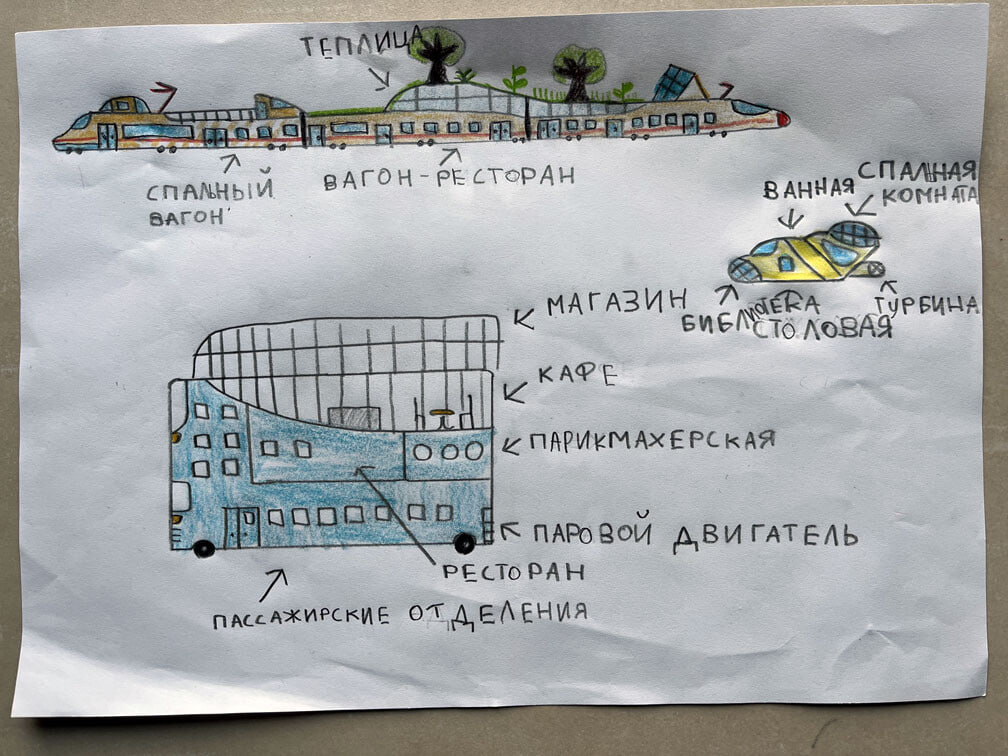 ТЕПЛИЦА
СПАЛЬНЫЙ
ВАГОН
ВАГОН-РЕСТОРАН
ВАННАЯ
СПАЛНАЯ
КОМНАТА
БИБЛИОТЕКА
СТОЛОВАЯ
ТУРБИНА
МАГАЗИН
КАФЕ
ПАРИКМАХЕРСКАЯ
ПАРОВОЙ ДВИГАТЕЛЬ
РЕСТОРАН
ПАССАЖИРСКИЕ ОТДЕЛЕНИЯ